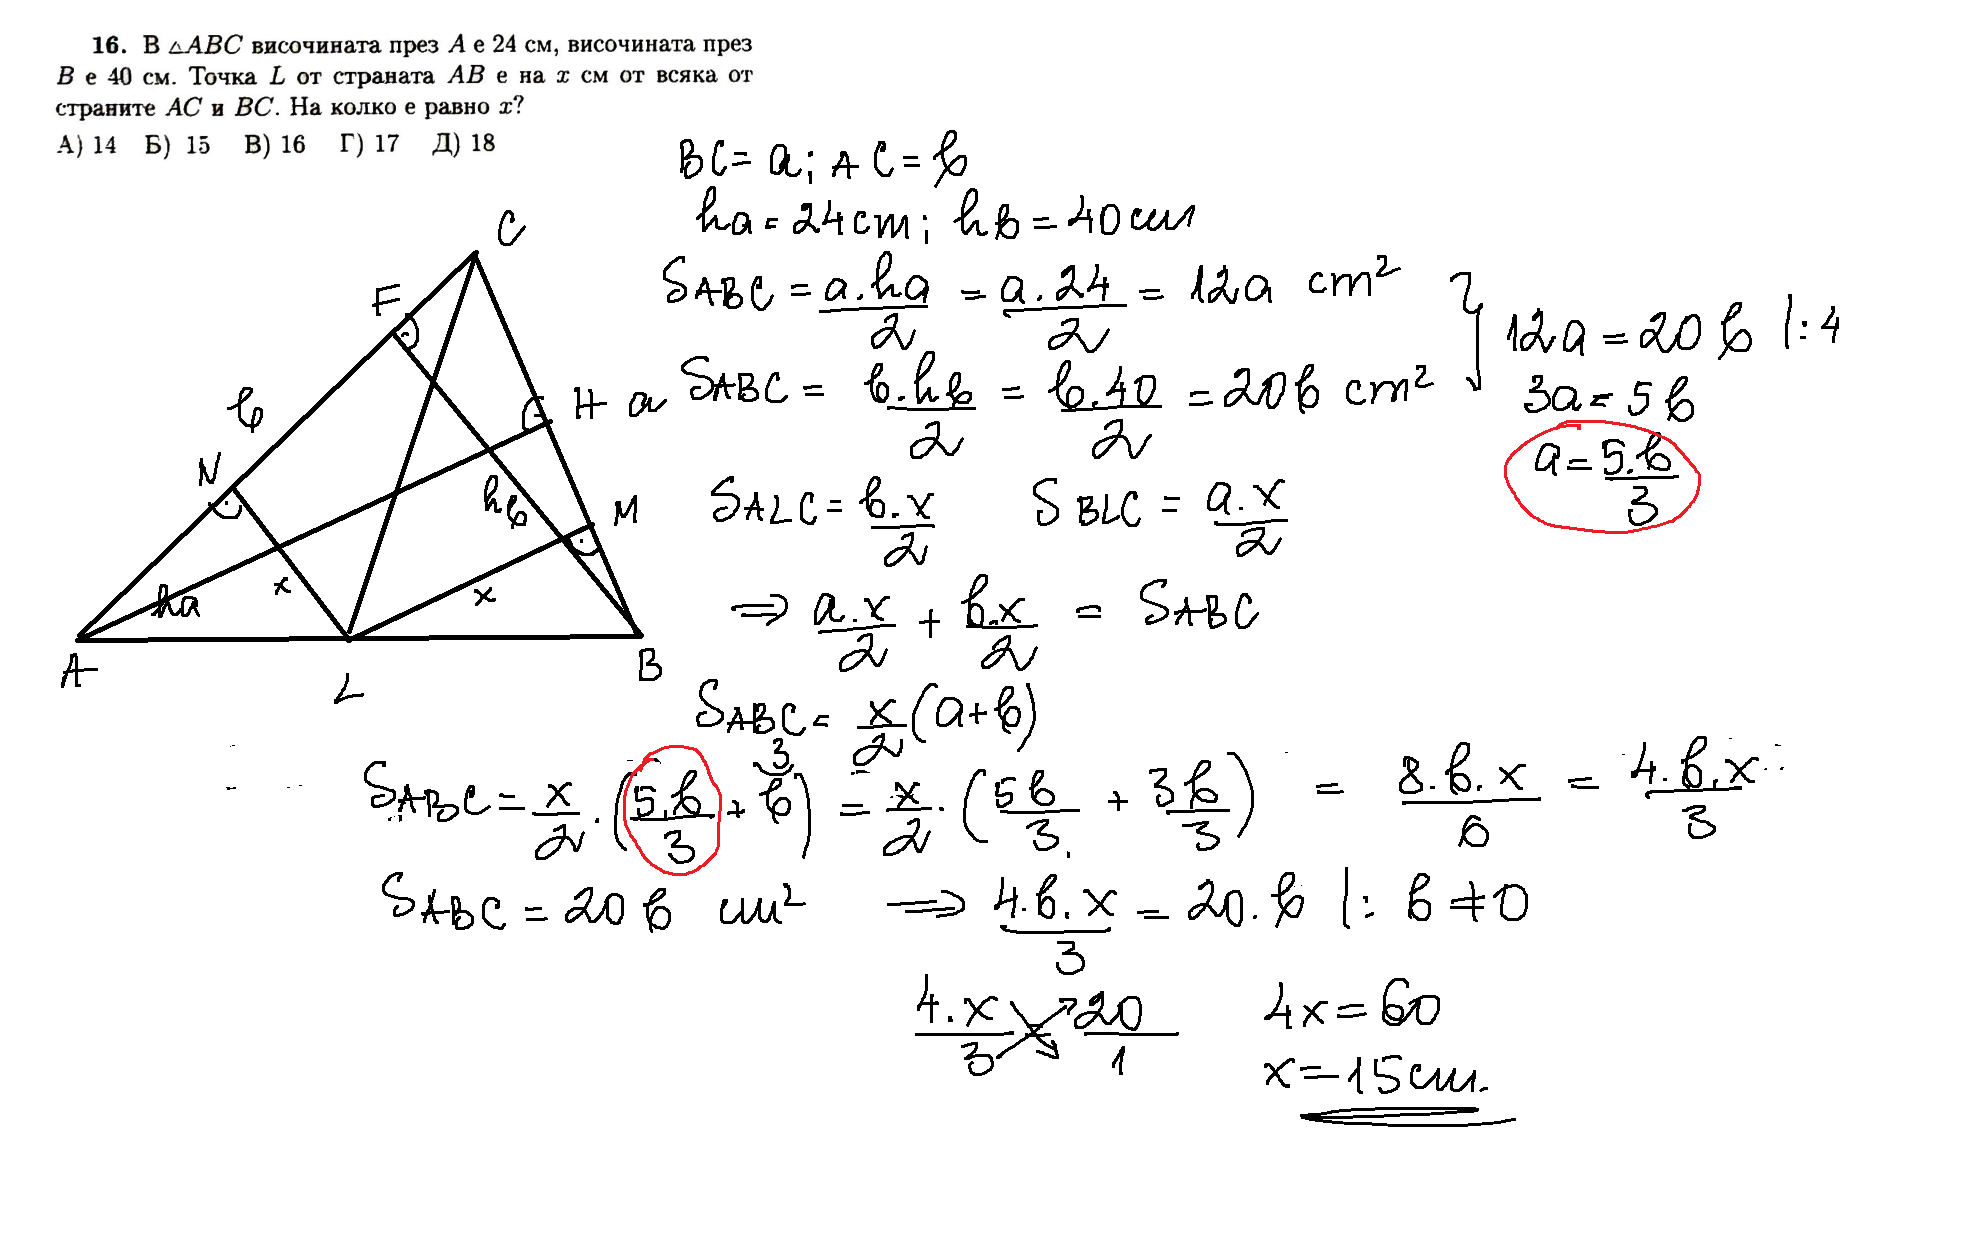 16. В △ABC височината през A е 24 см, височината през
B е 40 см. Точка L от страната AB е на x см от всяка от
страните AC и BC. На колко е равно x?
А) 14 Б) 15 В) 16 Г) 17 Д) 18
BC = a; AC = b
ha = 24 cm; hb = 40 cm
S ABC = a.ha/2 = a.24/2 = 12a cm²
S ABC = b.hb/2 = b.40/2 = 20b cm²
12a = 20b |:4
3a = 5b
a = 5.b/3
C
F
b
H a
N
hb
M
ha
x
x
A
L
B
S ALC = b.x/2 S BLC = a.x/2
⇒ a.x/2 + b.x/2 = S ABC
S ABC = x/2 (a+b)
3
S ABC = x/2 . (5.b/3 + b) = x/2 . (5b/3 + 3b/3) = 8.b.x/6 = 4.b.x/3
S ABC = 20b cm² ⇒ 4.b.x/3 = 20.b |: b ≠ 0
4.x/3 = 20/1 4x = 60
x = 15 cm.